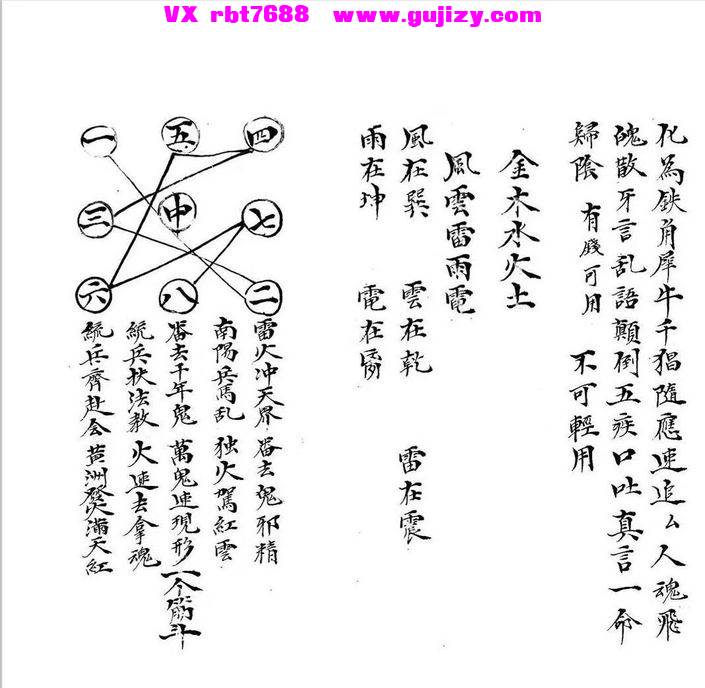 VX rbt7688 www.gujizy.com
化為鉄角犀牛千猖隨應速追厶人魂飛
魄散牙言乱語顛倒五疾口吐真言一命
歸陰 有錢可用 不可輕用
金木水火土
風雲雷雨電
風在巽 雲在乾 雷在震
雨在坤 電在
四 五 一
七 中 三
二 八 六
雷火冲天界 去鬼邪精
南陽兵馬乱 独火駕紅雲
去千年鬼 萬鬼速現形 一个筋斗
統兵扶法教 火速去拿魂
統兵齊赴会 黄洲發火滿天紅